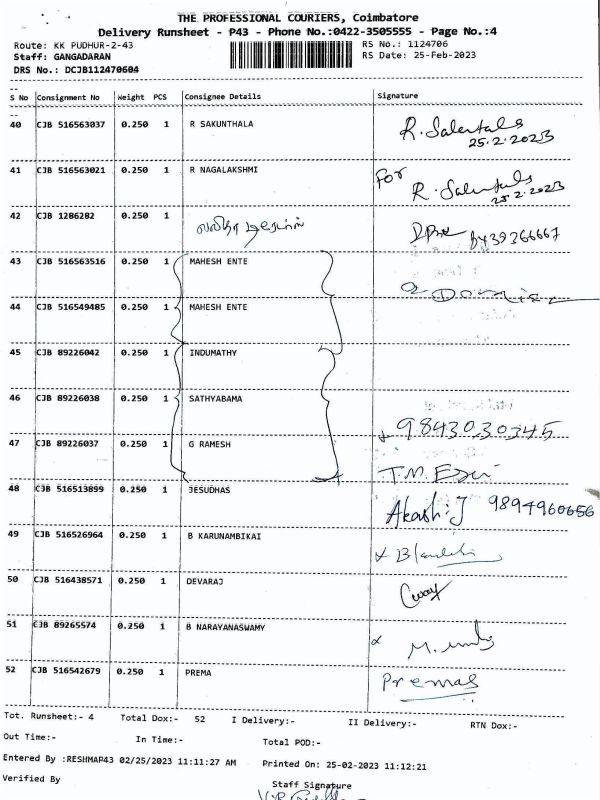 THE PROFESSIONAL COURIERS, Coimbatore
Delivery Runsheet - P43 - Phone No.:0422-3505555 - Page No.:4
Route: KK PUDHUR-2-43
RS No.: 1124706
Staff: GANGADARAN
RS Date: 25-Feb-2023
DRS No.: DCJB112470604
S No Consignment No Weight PCS Consignee Details Signature
40 CJB 516563037 0.250 1 R SAKUNTHALA
25.2.2023
41 CJB 516563021 0.250 1 R NAGALAKSHMI For
25.2.2023
42 CJB 1286282 0.250 1
43 CJB 516563516 0.250 1 MAHESH ENTE
44 CJB 516549485 0.250 1 MAHESH ENTE
45 CJB 89226042 0.250 1 INDUMATHY
46 CJB 89226038 0.250 1 SATHYABAMA
9843030345
47 CJB 89226037 0.250 1 G RAMESH
48 CJB 516513899 0.250 1 JESUDHAS Akash.J 9894960656
49 CJB 516526964 0.250 1 B KARUNAMBIKAI
50 CJB 516438571 0.250 1 DEVARAJ
51 CJB 89265574 0.250 1 B NARAYANASWAMY
52 CJB 516542679 0.250 1 PREMA Premas
Tot. Runsheet:- 4 Total Dox:- 52 I Delivery:- II Delivery:- RTN Dox:-
Out Time:- In Time:- Total POD:-
Entered By :RESHMAP43 02/25/2023 11:11:27 AM Printed On: 25-02-2023 11:12:21
Verified By Staff Signature